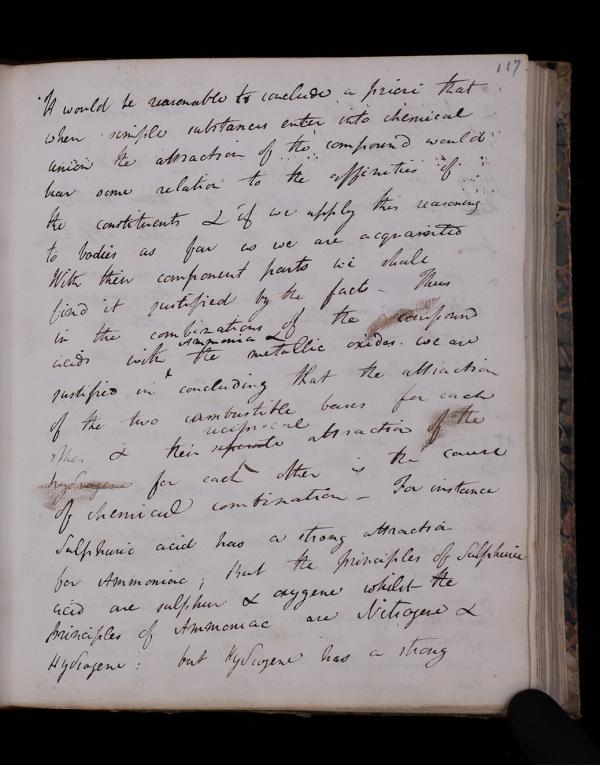 117
It would be reasonable to conclude a priori that
when simple substances enter into chemical
union the attraction of the compound would
bear some relation to the affinities of
the constituents & if we apply this reasoning
to bodies as far as we are acquainted
With their component parts we shall
find it justified by the facts - Thus
in the combinations of the compound
acids with Ammonia & the metallic oxides. we are
justified in concluding that the attraction
of the two combustible bases for each
other & their reciprocal attraction of the
hydrogene for each other is the cause
of chemical combination - For instance
Sulphuric acid has a strong attraction
for Ammoniac; But the principles of Sulphuric
acid are sulphur & oxygene whilst the
principles of Ammoniac are Nitrogene &
Hydrogene: but Hydrogene has a strong